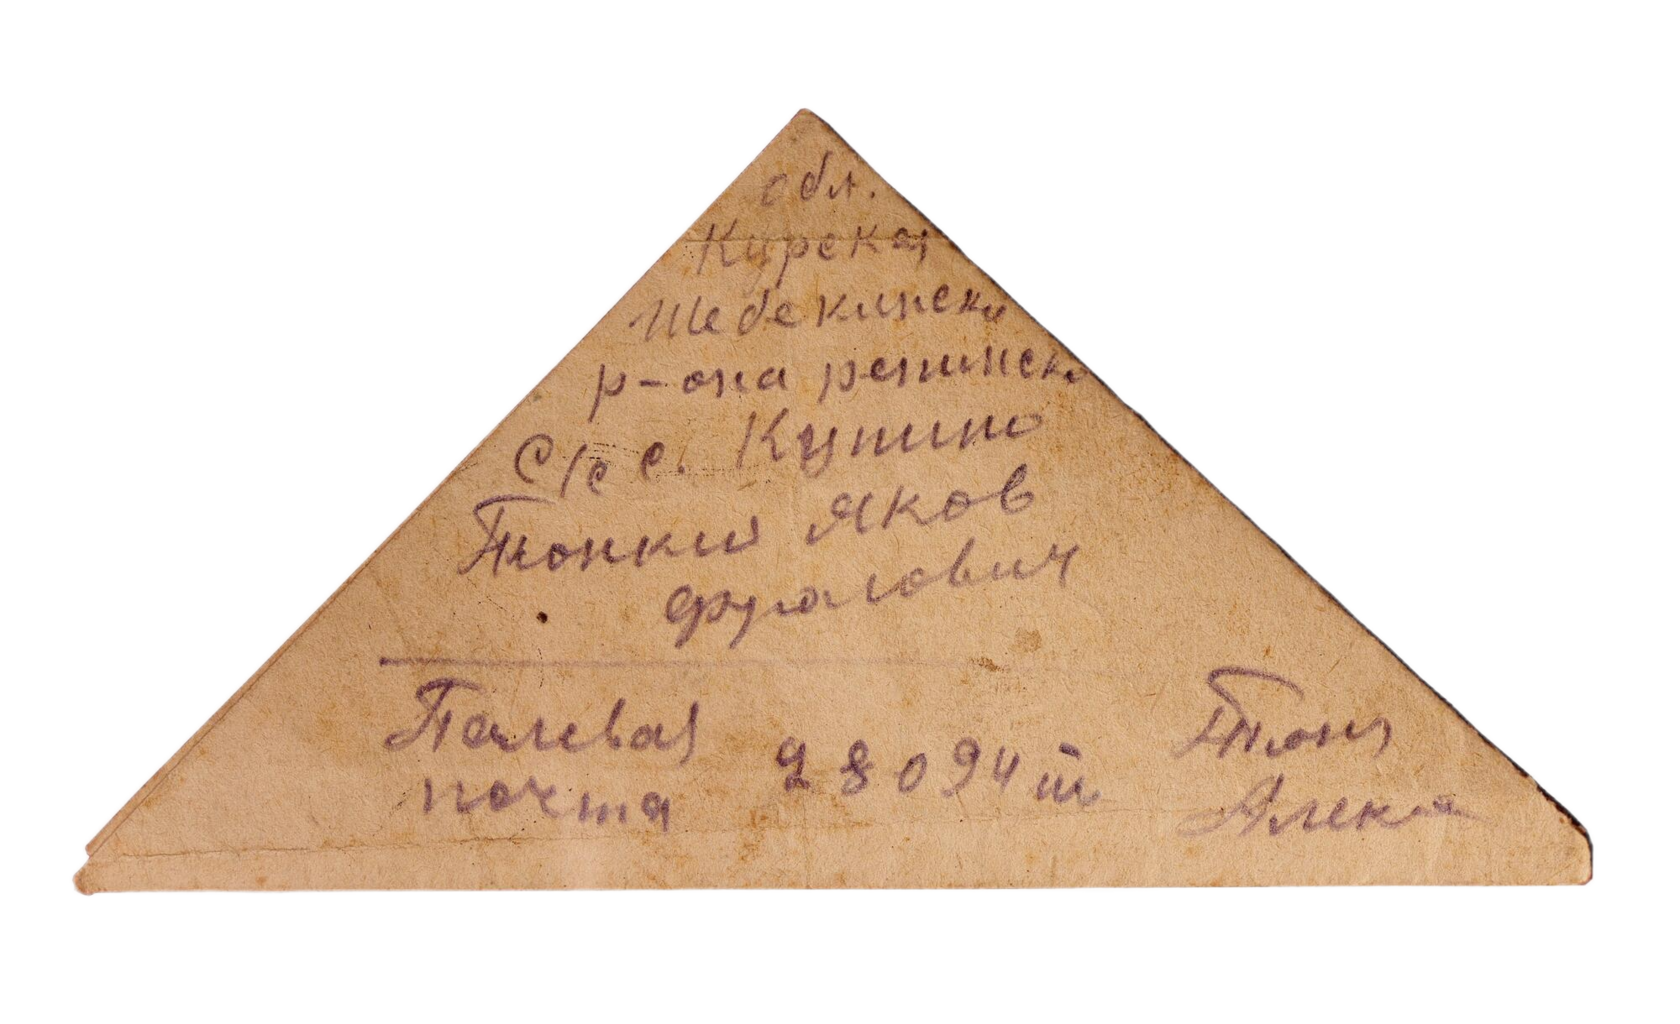 обл.
Курская
Шебекински
р-она репинско
С/с с. Купино
Тонкий Яков
Фролович
Палевая
почта 28094 ш
Тонк
Алекс